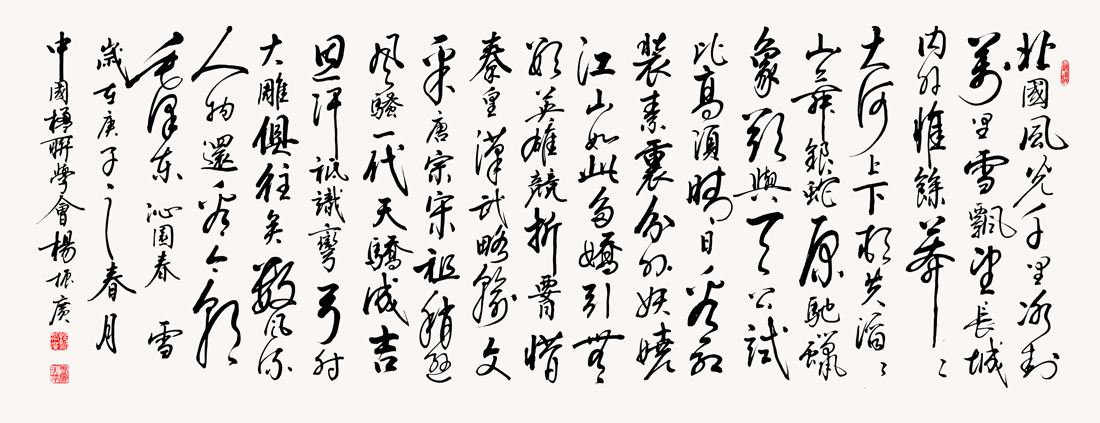 北國風光千里冰封
萬里雪飄望長城
内外惟餘莽〻
大河上下頓失滔〻
山舞銀蛇原馳蠟
象欲與天公試
比高須晴日看紅
裝素裹分外妖嬈
江山如此多嬌引無
數英雄競折腰惜
秦皇漢武略輸文
采唐宗宋祖稍遜
風騷一代天驕成吉
思汗祇識彎弓射
大雕俱往矣數風流
人物還看今朝
毛澤東 沁園春 雪
歲在庚子之春月
中國楹聯學會楊振廣